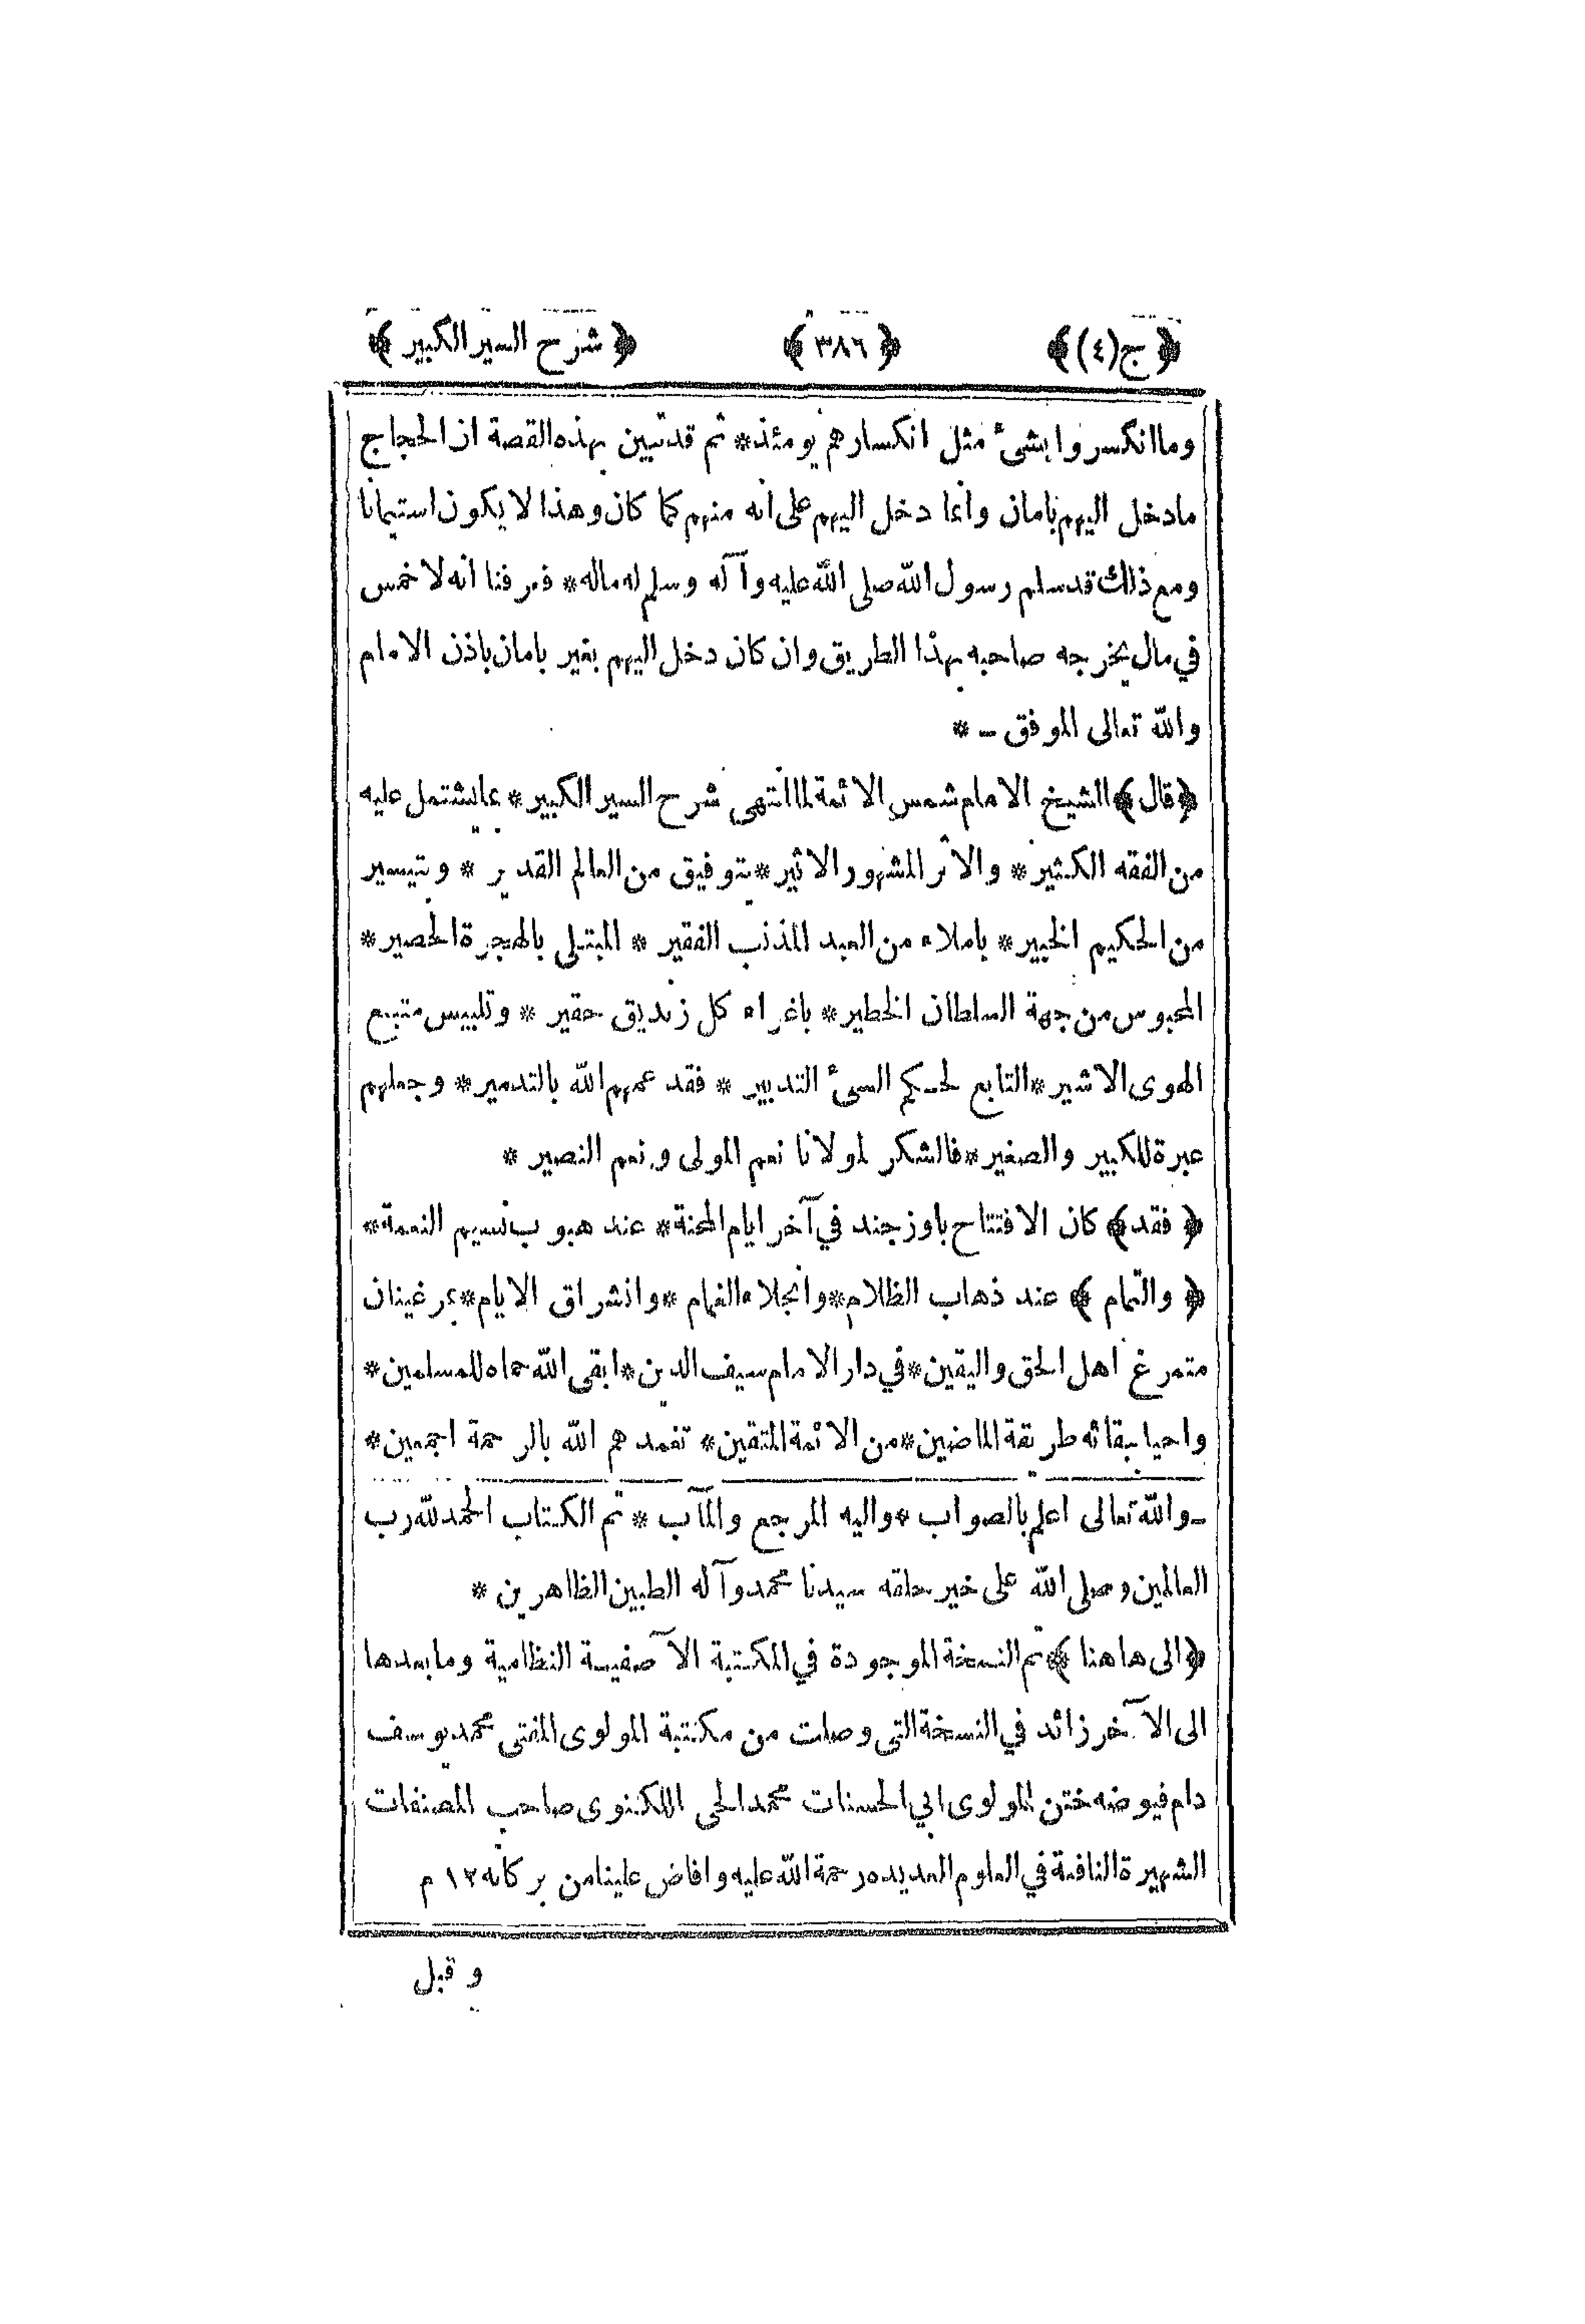 ﴿ ج(٤) ﴾ ﴿ ٣٨٦ ﴾ ﴿ شرح السير الكبير ﴾
وما انكسروا بشئ مثل انكسارهم يومئذ * ثم قد تبين بهذه القصة ان الحجاج
ما دخل اليهم بامان وانما دخل اليهم على انه منهم كما كان وهذا لا يكون استيمانا
ومع ذلك قد سلم رسول الله صلى الله عليه وآله وسلم له ماله * فعرفنا انه لا خمس
في مال يخرجه صاحبه بهذا الطريق وان كان دخل اليهم بغير بامان باذن الامام
والله تعالى الموفق - *
﴿ قال ﴾ الشيخ الامام شمس الائمة لما انتهى شرح السير الكبير * بما يشتمل عليه
من الفقه الكثير * والاثر المشهور الاثير * بتوفيق من العالم القدير * وتيسير
من الحكيم الخبير * باملاء من العبد المذنب الفقير * المبتلى بالهجرة الحصير *
المحبوس من جهة السلطان الخطير * باغراء كل زنديق حقير * وتلبيس متبع
الهوى الاشير * التابع لحكم السئ التدبير * فقد عمهم الله بالتدمير * وجعلهم
عبرة للكبير والصغير * فالشكر لمولانا نعم المولى ونعم النصير *
﴿ فقد ﴾ كان الافتتاح باوزجند في آخر ايام المحنة * عند هبوب نسيم النعمة *
﴿ والتمام ﴾ عند ذهاب الظلام * وانجلاء الغمام * وانشراق الايام * بمرغينان
متمرغ اهل الحق واليقين * في دار الامام سيف الدين * ابقى الله حماه للمسلمين *
واحيا ببقائه طريقة الماضين * من الائمة المتقين * تغمدهم الله بالرحمة اجمعين *
-والله تعالى اعلم بالصواب * واليه المرجع والمآب * تم الكتاب الحمد لله رب
العالمين وصلى الله على خير خلقه سيدنا محمد وآله الطيبين الظاهرين *
﴿ الى هاهنا ﴾ تم النسخة الموجودة في المكتبة الآصفيسة النظامية وما بعدها
الى الآخر زائد في النسخة التى وصلت من مكتبة المولوى المفتى محمد يوسف
دام فيوضه ختن المولوى ابي الحسنات محمد الحى اللكنوى صاحب المصنفات
الشهيرة النافعة في العلوم العديده رحمة الله عليه وافاض علينا من بركاته ١٢ م
وقيل